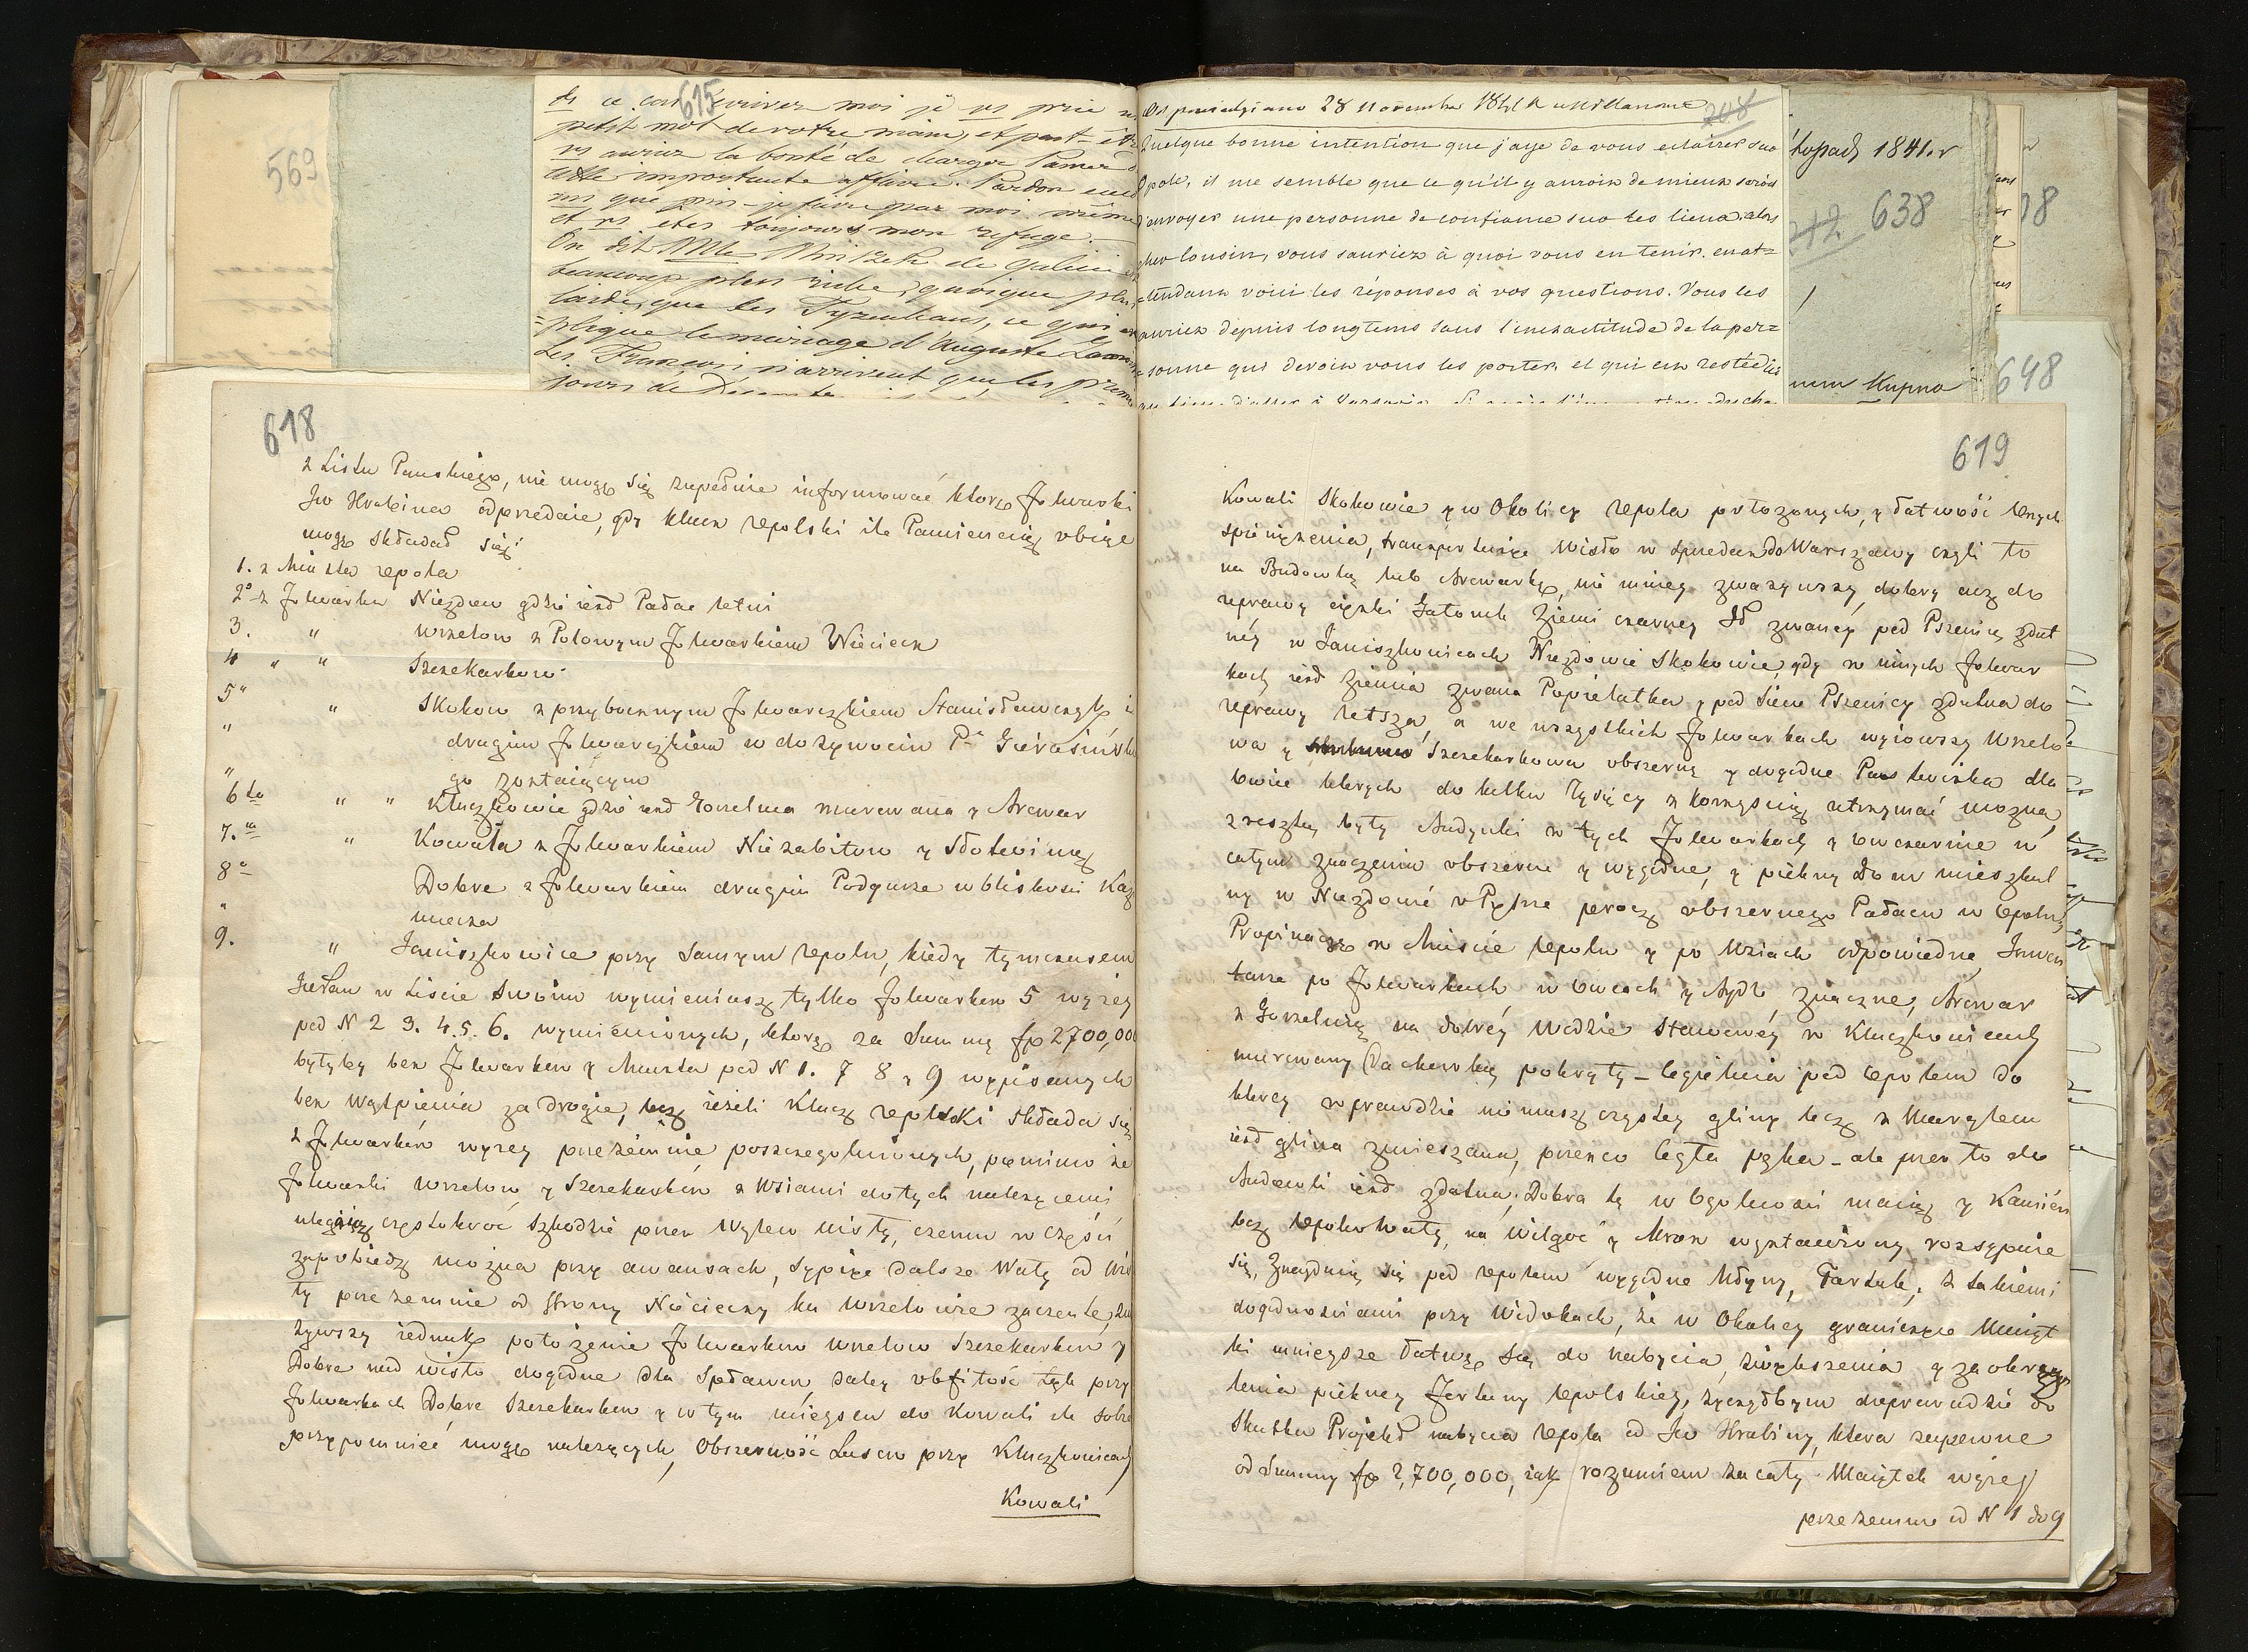 569
615
petit mot de votre main, et peut-être
vs auriez la bonté de charger
cette importante affaire. Pardon
que puis-je faire par moi même
et vs etes toujours mon refuge.
On dit Mlle de Galicie
beaucoup plus riche, quoique plus
laide, que les Tyzenhaus, ce qui ex
=plique le mariage d'Auguste
Les François n'arrivent que les premiers
jours de Décembre
Odpowiedziano 28 novembra 1841 R
208
Quelque bonne intention que j'aye de vous eclairer sur
Opole, il me semble que ce qu'il y auroit de mieux seroit
d'envoyer une personne de confiance sur les lieux; alors
cher Cousin, vous sauriez à quoi vous en tenir. en at=
=tendant voici les réponses à vos questions. Vous les
auriez depuis longtems sans l'inexactitude de la per=
=sonne qui devoit vous les porter et qui est restée ici
Listopad 1841. r
212 638
Kupna
648
618
z Listu Pańskiego, nie mogę się zupełnie informować ktore Folwarki
JW Hrabina odprzedaie, gdy klucz Opolski ile Pamiencią obięte
mogę składał się:
1. z Miasta Opola
2º z Folwarku Niezdow gdzie iest Pałac letni
3. " Wrzelow z Polowym Folwarkiem Niecieck
4 " " Szczekarkow
5 " " Skokow z przybocznym Folwarczkiem Stanisławczyk i
" drugim Folwarczkiem w dozywociu Pa Gierasińskie
" go zostaiącym
6to " " Kluczkowice gdzie iest Gorzelnia murowana y Browar
7.mo " Kowala z Folwarkiem Niezabitow y
8o Dobre z Folwarkiem drugim Podgurze w bliskosci Kaz
" mierza
9. " Janiszkowice przy samym Opolu, kiedy tymczasem
JWPan w Liscie Swoim wymieniasz tylko Folwarkow 5 wyzey
pod N 2 3. 4. 5. 6. wymienionych, ktore za Summę fp 2700,000
byłyby bez Folwarkow y Miasta pod N 1. 7 8 y 9 wypisanych
bez wątpienia za drogie, lecz ieżeli Klucz Opolski składa się
z Folwarków wyzey przezemnie poszczegolnionych, pomimo że
Folwarki Wrzelow y Szczekarkow z Wsiami do tych należącemi
ulegaią częstokroć Szkodzie przez Wylew Wisły, czemu w Części
zapobiedz można przy awansach, Sypiąc dalsze Wały od Wis
ły przezemnie od strony Niecieczy ku Wrzelowie zaczente, zwa
żywszy iednak położenie Folwarkow Wrzelow Szczekarkow y
Dobre nad Wisłą dogodne dla Spławow, daley obfitość łąk przy
Folwarkach Dobre Szczekarkow y w tym mieyscu do Kowali ile sobie
przypomnieć mogę należących, Obszerność Lasow przy Kluczkowicach
Kowali
619
Kowali Skokowie y w Okolicy Opola położonych, y łatwość onych
spieniężenia, transportuiąc Wisłą w sprzedaż do Warszawy czyli to
na Budowlą lub Browarkę, nie mniey zważywszy dobry acz do
uprawy cięzki Gatunek Ziemi czarney Ił zwaney pod Pszenicę zdat
néy w Janiszkowicach Niezdowie Skokowie, gdy w innych Folwar
kach iest Ziemia zwana Popielatka y pod Siew Pszenicy zdatna do
uprawy letsza, a we wszystkich Folwarkach wyiowszy Wrzelo
wa y Szczekarkowa obszerne y dogodne Pastwiska dla
Owiec ktorych do kilku Tysięcy z korzyscią utrzymać mozna,
zresztą były Budynki w tych Folwarkach y Owczarnie w
całym znaczeniu obszerne y wygodne, y piękny Dom mieszkal
ny w Niezdowie v Pietrze prócz obszernego Pałacu w Opolu,
Propinacye w Miescie Opolu y po Wsiach odpowiedne, Inwen
tarze po Folwarkach w Owcach y Bydle znaczne, Browar
z Gorzelnią na dobréy Wodzie Stawowéy w Kluczkowicach
murowany Dachowką pokryty - Cegielnia pod Opolem do
ktorey w prawdzie niemasz czystey gliny lecz z Marglem
iest glina zmieszana, przezco Cegła pęka - ale przeto do
Budowli iest zdatna. Dobra te w Ogolności maią y Kamień
lecz Opokowaty, na Wilgoć y Mroz wystawiony rozsypuie
się, Znayduią się pod Opolem wygodne Młyny, Tartak, z takiemi
dogodnosciami przy Widokach, że w Okolicy graniczące Maiąt
ki mnieysze łatwe są do nabycia, zwiększenia y zaokrąg
lenia piękney Fortuny Opolskiey, życzyłbym doprowadzić do
Skutku Projekt nabycia Opola od JW Hrabiny, ktora zapewne
od Summy fp 2,700,000, iak rozumiem za cały Maiątek wyzej
przezemnie od N 1 do 9